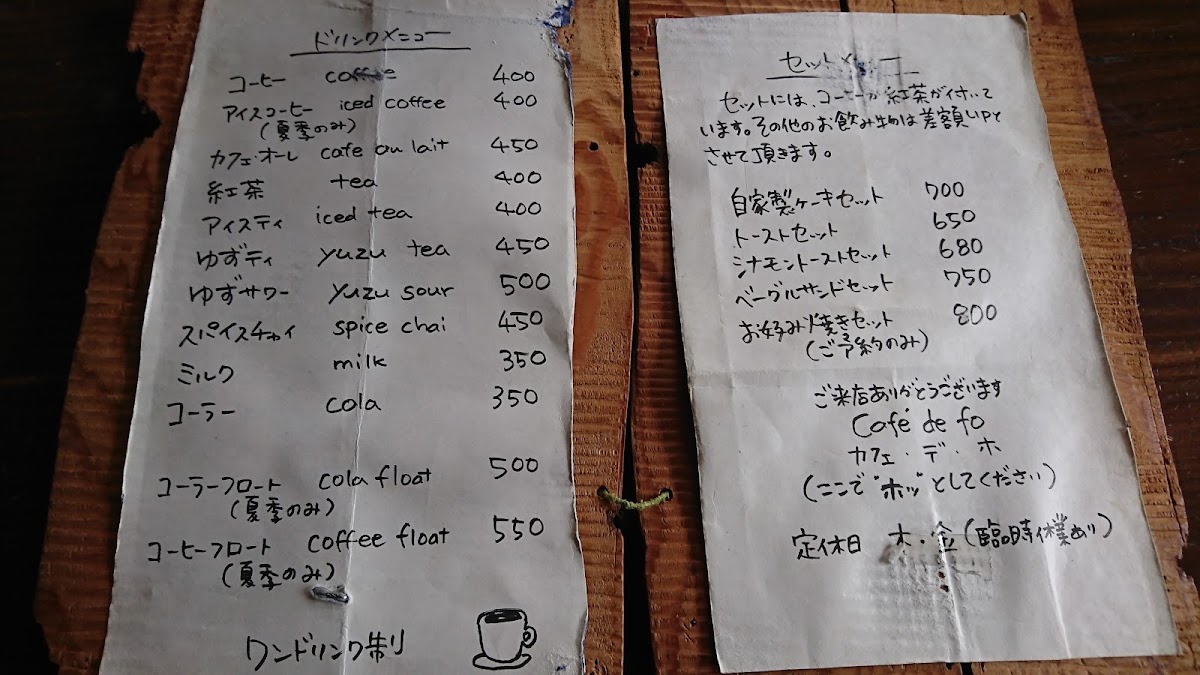 ドリンクメニュー
コーヒー coffee 400
アイスコーヒー iced coffee 400
(夏季のみ)
カフェ・オーレ cafe au lait 450
紅茶 tea 400
アイスティ iced tea 400
ゆずティ yuzu tea 450
ゆずサワー yuzu sour 500
スパイスチャイ spice chai 450
ミルク milk 350
コーラー cola 350
コーラーフロート cola float 500
(夏季のみ)
コーヒーフロート coffee float 550
(夏季のみ)
ワンドリンク制り
セットメニュー
セットには、コーヒーか紅茶が付いて
います。その他のお飲み物は差額UPと
させて頂きます。
自家製ケーキセット 700
トーストセット 650
シナモントーストセット 680
ベーグルサンドセット 750
お好み焼きセット 800
(ご予約のみ)
ご来店ありがとうございます
Café de fo
カフェ・デ・ホ
(ここで"ホッ"としてください)
定休日 木・金(臨時休業あり)